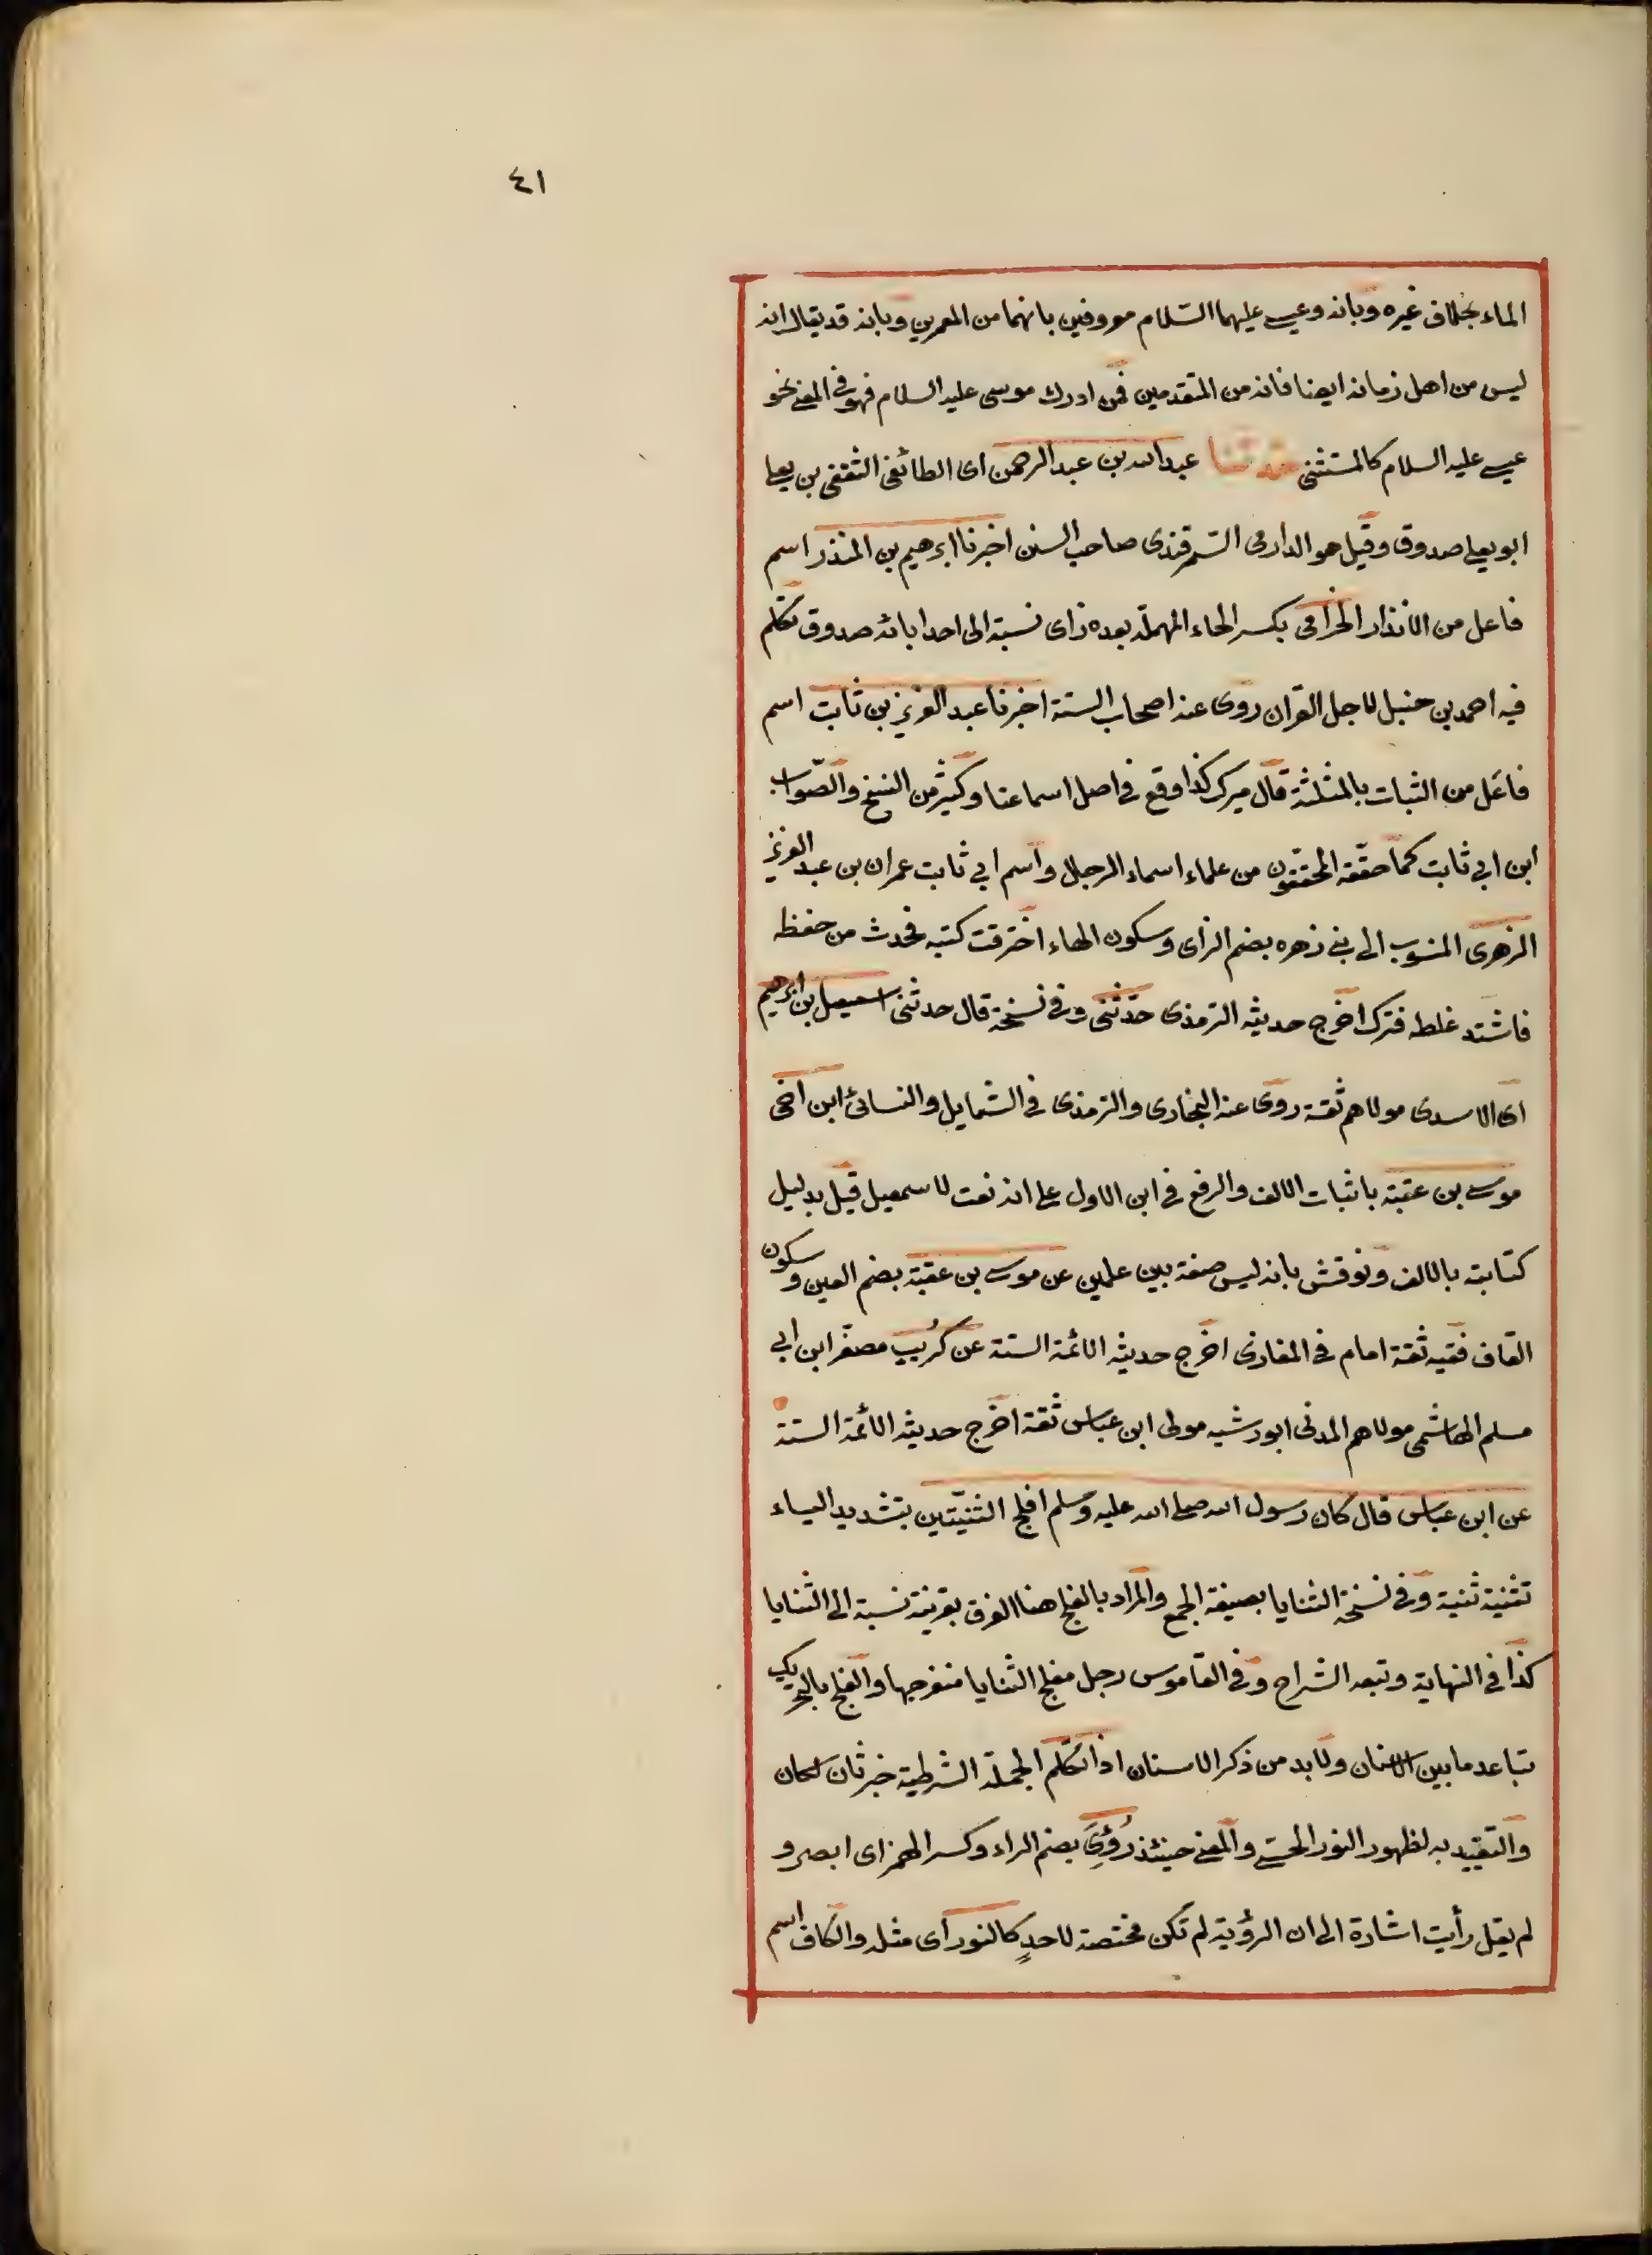 ٤١
الماء بخلاف غيره وبانه وعيسى عليهما السّلام معروفين بانهما من المعمرين وبانه قد يقال انه
ليس من اهل زمانه ايضا فانه من المتقدمين فمن ادرك موسى عليه السلام فهو في المعنى نحو
عيسى عليه السلام كالمستثنى حدثنا عبد الله بن عبد الرحمن اى الطائفى الثقفى بن يعلى
ابو يعلى صدوق وقيل هو الدارمى السّمرقندى صاحب السنن اخبرنا ابرهيم بن المنذر اسم
فاعل من الانذار الحزامى بكسر الحاء المهملة بعده زاى نسبة الى احد ابائه صدوق تكلم
فيه احمد بن حنبل لاجل القرآن روى عنه اصحاب الستة اخبرنا عبد العزيز بن ثابت اسم
فاعل من الثبات بالمثلثة قال ميرك كذا وقع في اصل اسماعنا وكثير من النسخ والصّواب
ابن ابي ثابت كما حقّقه المحققون من علماء اسماء الرجال واسم ابي ثابت عمران بن عبد العزيز
الزهرى المنسوب الى بنى زهره بضم الزاى وسكون الهاء احترقت كتبه فحدث من حفظه
فاشتد غلطه فترك اخرج حديثه الترمذى حدّثنى وفى نسخة قال حدثنى اسمعيل بن ابرهيم
اى الاسدى مولاهم ثقة روى عنه البخارى والترمذى فى الشمايل والنسائى ابن اخى
موسى بن عقبة باثبات الالف والرفع فى ابن الاول على انه نعت لاسمعيل قيل بدليل
كتابته بالالف ونوقش بانه ليس صفة بين علمين عن موسى بن عقبة بضم العين وسكون
القاف فقيه ثقة امام فى المغازى اخرج حديثه الائمة الستة عن كُريب مصغّر ابن ابي
مسلم الهاشمى مولاهم المدنى ابو رشيد مولى ابن عباس ثقة اخرج حديثه الائمة الستة
عن ابن عباس قال كان رسول الله صلى الله عليه وسلم افلج الثنيّتين بتشديد الياء
تثنية ثنية وفى نسخة الثنايا بصيغة الجمع والمراد بالفلج هنا الفرق بقرينة نسبة الى الثنايا
كذا فى النهاية وتبعه الشراح وفى القاموس رجل مفلج الثنايا منفرجها والفلج بالتحريك
تباعد ما بين الاسنان ولابد من ذكر الاسنان اذا تكلّم الجملة الشرطية خبر ثان لكان
والتقييد به لظهور النور الحسى والمعنى حينئذ رُؤِىَ بضم الراء وكسر الهمز اى ابصر و
لم يقل رأيت اشارة الى ان الرؤية لم تكن مختصة لاحدٍ كالنور اى مثله والكاف اسم